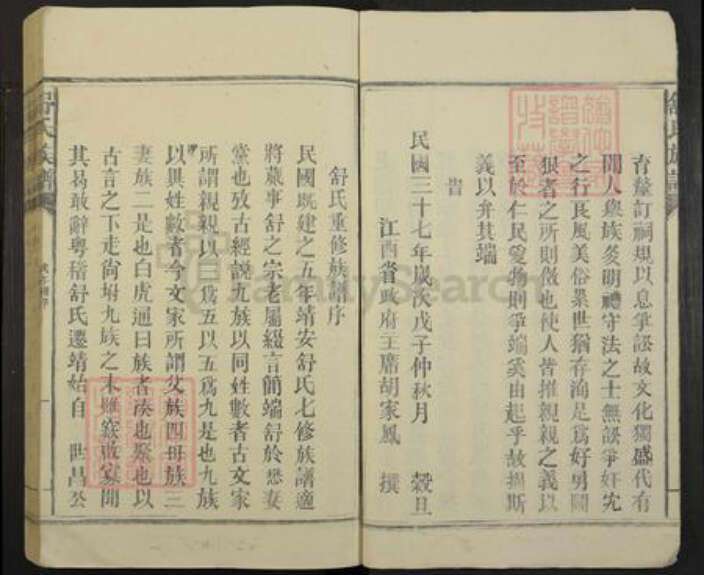 舒氏族譜
育釐訂祠規以息爭訟故文化獨盛代有
聞人與族爻明禮守法之士無訟爭奸宄
之行良風美俗累世猶存洵是爲好男閾
狠者之所則傚也使人皆推親親之義以
至於仁民愛物則爭端奚由起乎故摛斯
義以弁其端
旹
民國三十七年歲次戊子仲秋月 穀旦
江西省政府主席胡家鳳 撰
舒氏重修族譜序
民國既建之五年靖安舒氏七修族譜適
將蕆事舒之宗老屬綴言簡端舒於懋妻
黨也攷古經說九族以同姓數者古文家
所謂親親以三爲五以五爲九是也九族
以異姓數者今文家所謂父族四母族三
妻族二是也白虎通曰族者湊也聚也以
古言之下走尙坿九族之末雖窾啟寡聞
其曷敢辭粵稽舒氏遷靖始自 世昌公
舒氏族譜
FamilySearch